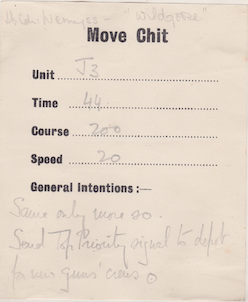 "Wildgoose"
Move Chit
Unit J3
Time 44
Course 200
Speed 20
General Intentions :—
Same only more so.
Send Top Priority signal to depot
for new guns' crews.